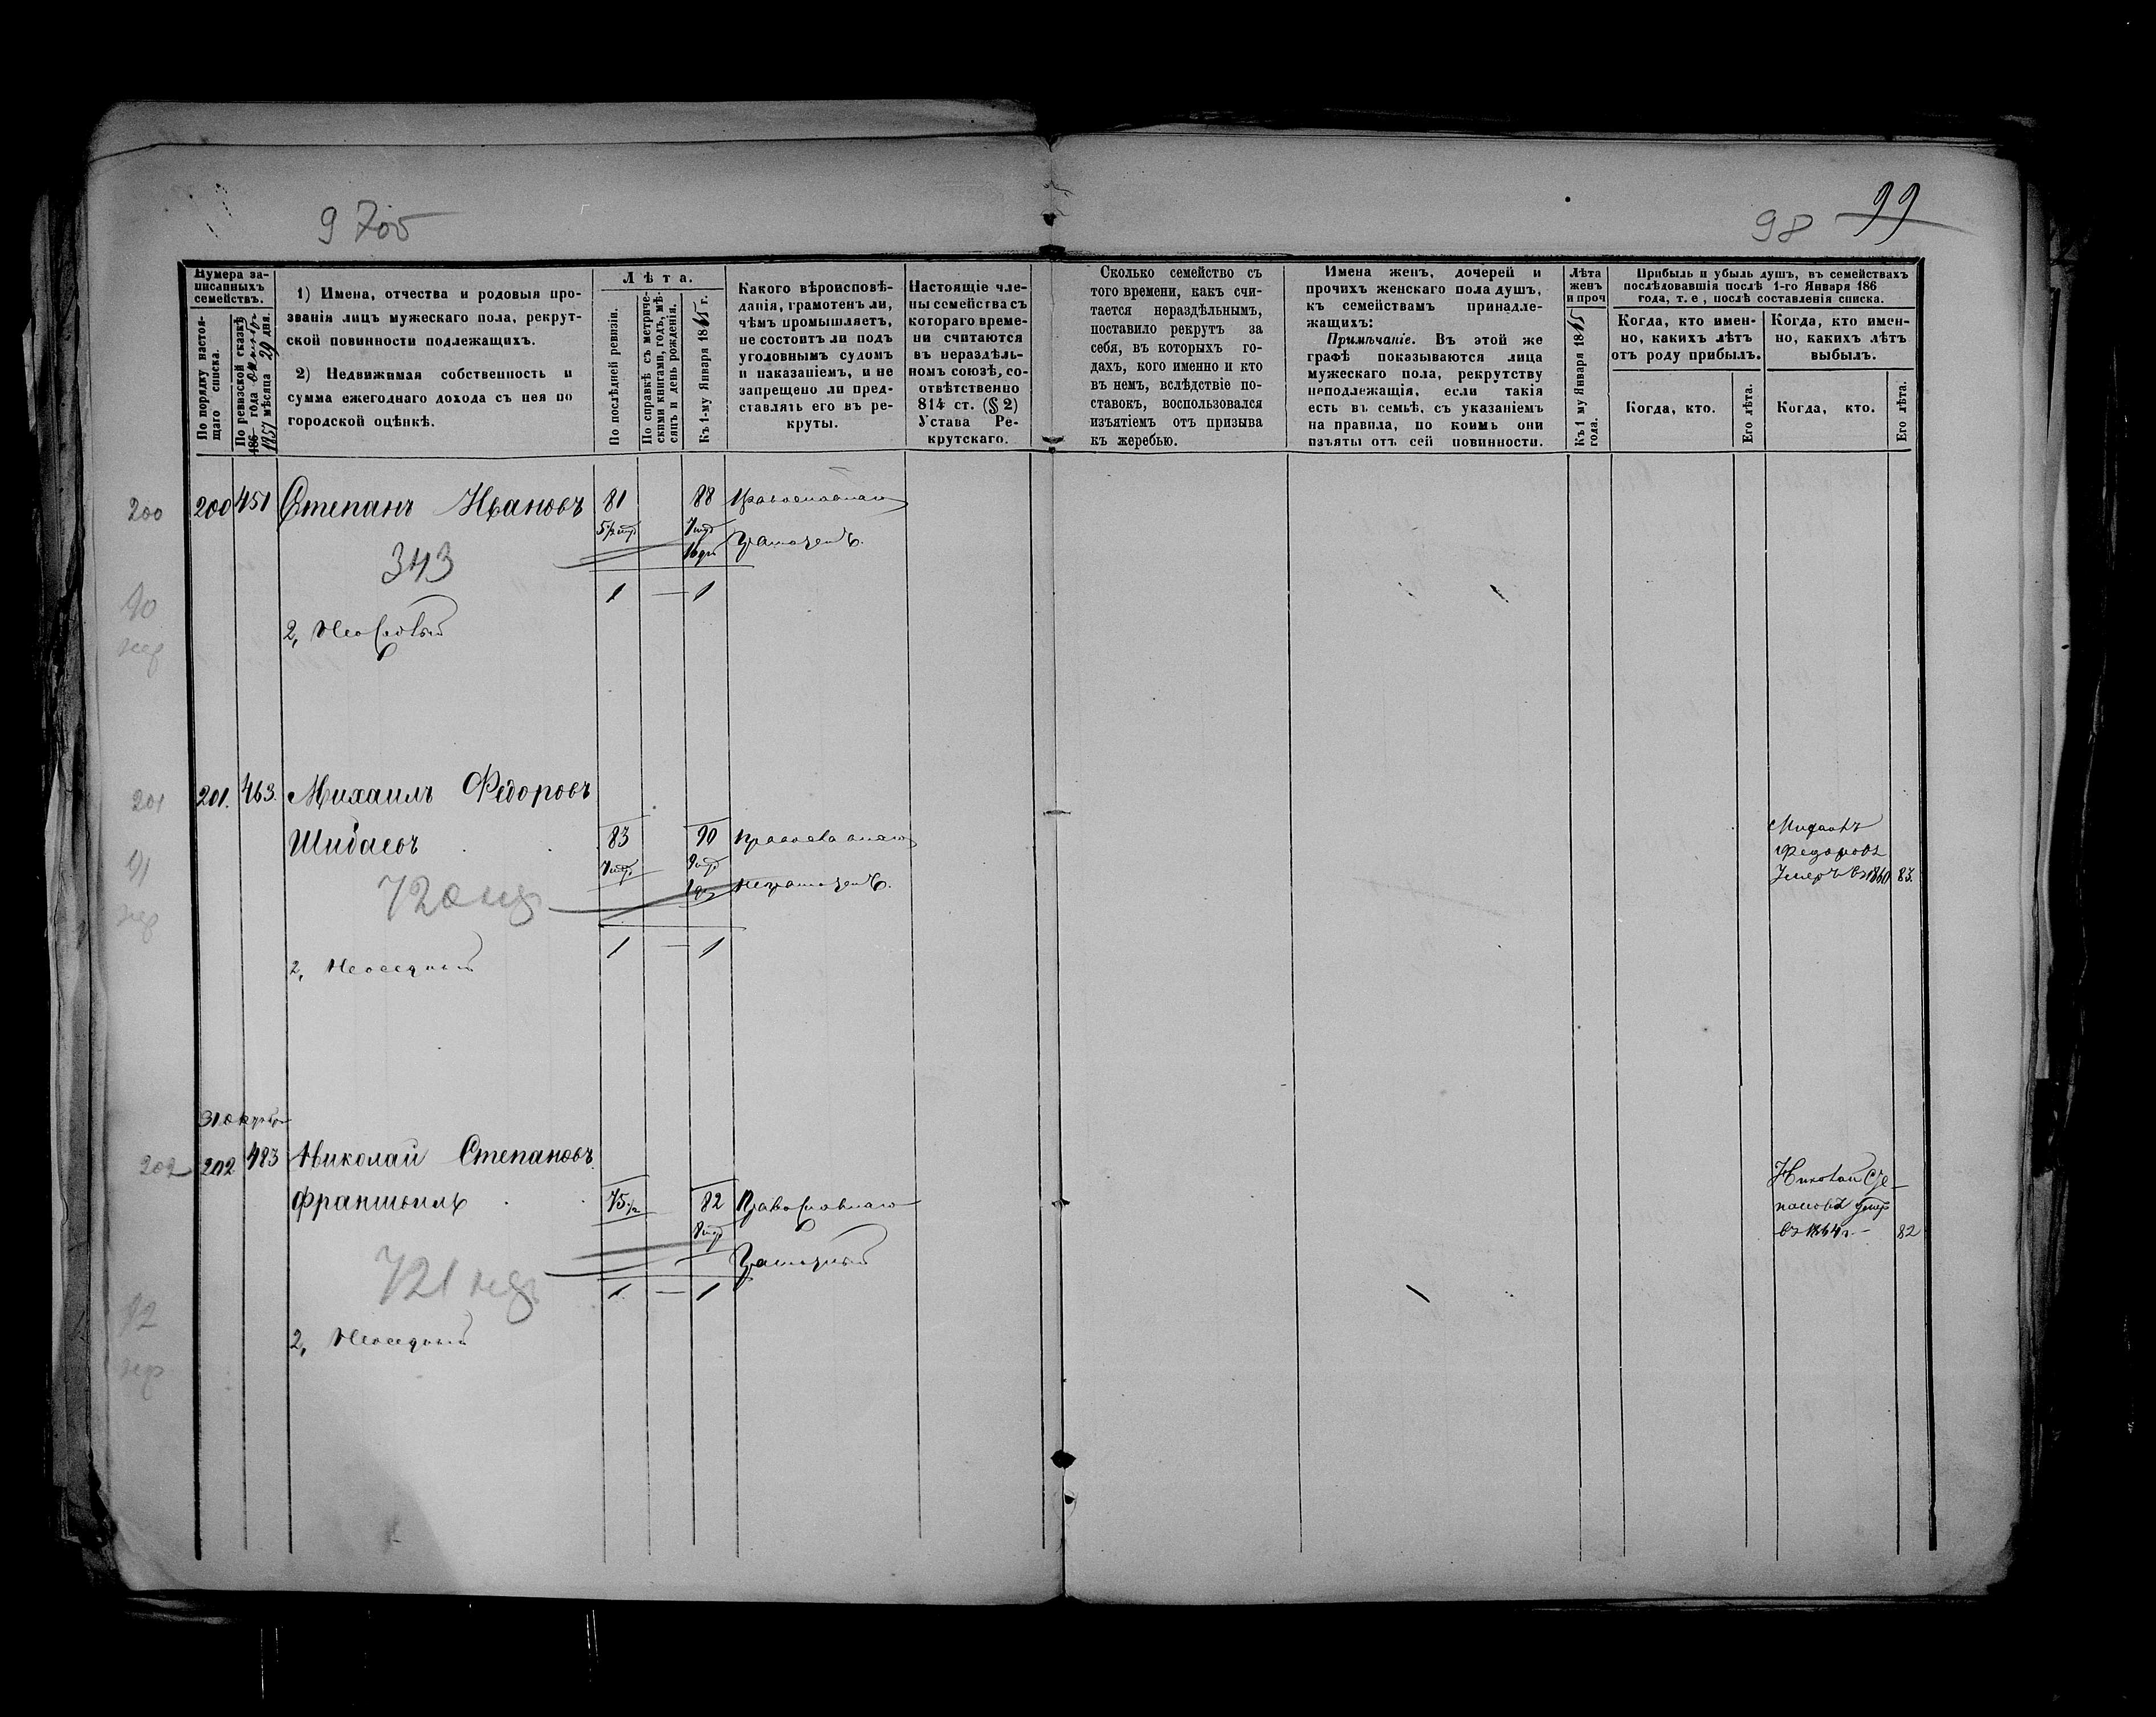 9 705
98
99
Нумера за-
писанныхъ
семействъ.
По порядку настоя-
щаго списка.
По ревизской сказкѣ
186 года
1857 мѣсяца 29 дня.
1) Имена, отчества и родовыя про-
званія лицъ мужескаго пола, рекрут-
ской повинности подлежащихъ.
2) Недвижимая собственность и
сумма ежегоднаго дохода съ нея по
городской оцѣнкѣ.
Лѣта.
По послѣдней ревизіи.
По справкѣ съ метриче-
скими книгами, годъ, мѣ-
сяцъ и день рожденія.
Къ 1-му Января 1865 г.
Какого вѣроисповѣ-
данія, грамотенъ ли,
чѣмъ промышляетъ,
не состоитъ ли подъ
уголовнымъ судомъ
и наказаніемъ, и не
запрещено ли пред-
ставлять его въ ре-
круты.
Настоящіе чле-
ны семейства съ
котораго време-
ни считаются
въ нераздѣль-
номъ союзѣ, со-
отвѣтственно
814 ст. (§ 2)
Устава Ре-
крутскаго.
Сколько семейство съ
того времени, какъ счи-
тается нераздѣльнымъ,
поставило рекрутъ за
себя, въ которыхъ го-
дахъ, кого именно и кто
въ немъ, вслѣдствіе по-
ставокъ, воспользовался
изъятіемъ отъ призыва
къ жеребью.
Имена женъ, дочерей и
прочихъ женскаго пола душъ,
къ семействамъ принадле-
жащихъ:
Примѣчаніе. Въ этой же
графѣ показываются лица
мужескаго пола, рекрутству
неподлежащія, если такія
есть въ семьѣ, съ указаніемъ
на правила, по коимъ они
изъяты отъ сей повинности.
Лѣта
женъ
и проч
Къ 1 му Января 1865
года.
Прибыль и убыль душъ, въ семействахъ
послѣдовавшія послѣ 1-го Января 186
года, т. е, послѣ составленія списка.
Когда, кто имен-
но, какихъ лѣтъ
отъ роду прибылъ.
Когда, кто.
Его лѣта.
Когда, кто имен-
но, какихъ лѣтъ
выбылъ.
Когда, кто.
Его лѣта.
200 200 451 Степанъ Ивановъ 81 88 Православнаго
Грамотенъ.
343
1 — 1
90
2, Неоседлый
201 201. 463. Михаилъ Федоровъ
83 90 Православнаго
Неграмотенъ.
91
720
1 — 1
2, Неоседлый
Михаилъ
Федоровъ
Умеръ въ 1860 83.
31 октября
202 202 483 Николай Степановъ
75½ 82 Православнаго
Грамотный
721
1 — 1
92
2, Неоседлый
Николай Сте-
пановъ умеръ
въ 1864 г. 82